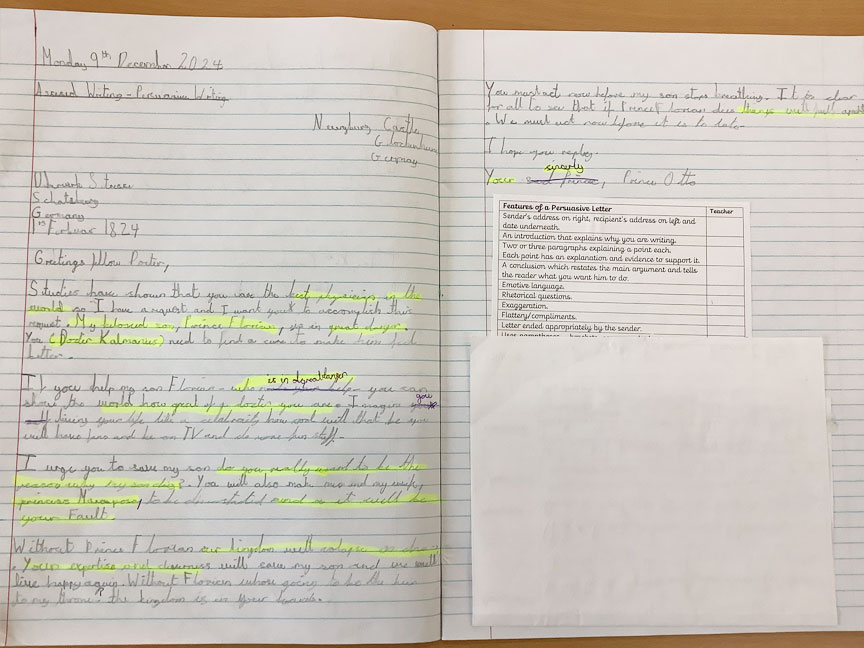 Monday 9th December 2024
Assessed Writing - Persuasive Writing
Castle
Germany
Germany
1st 1824
Greetings fellow
Studies have shown that you are the best physicians in the
world so I have a request and I want you to accomplish this
request. My beloved son, Prince Florian, is in great danger.
You (Doctor Kalmanius) need to find a cure to make him feel
better.
is in dyer danger
If you help my son Florian - - you can
show the world how great of a doctor you are. I imagine
you
living your life like a celebrity how cool will that be you
will have fans and be on TV and do some fun stuff.
I urge you to save my son do you really want to be the
reason why my son dies? You will also make me and my wife,
princess to be devastated and it will be
your Fault.
Without Prince Florian our kingdom will colapse as
. Your expertise and will save my son and we will
live happy again. Without Florian whose going to be the heir
to my throne? the kingdom is in your hands.
You must act now before my son stops breathing. It is clear
for all to see that if Prince Florian dies things will fall apart
. We must act now before it is to late.
I hope you reply.
sincerly
Your , Prince Otto
Features of a Persuasive Letter Teacher
Sender's address on right, recipient's address on left and
date underneath.
An introduction that explains why you are writing.
Two or three paragraphs explaining a point each.
Each point has an explanation and evidence to support it.
A conclusion which restates the main argument and tells
the reader what you want him to do.
Emotive language.
Rhetorical questions.
Exaggeration.
Flattery/compliments.
Letter ended appropriately by the sender.